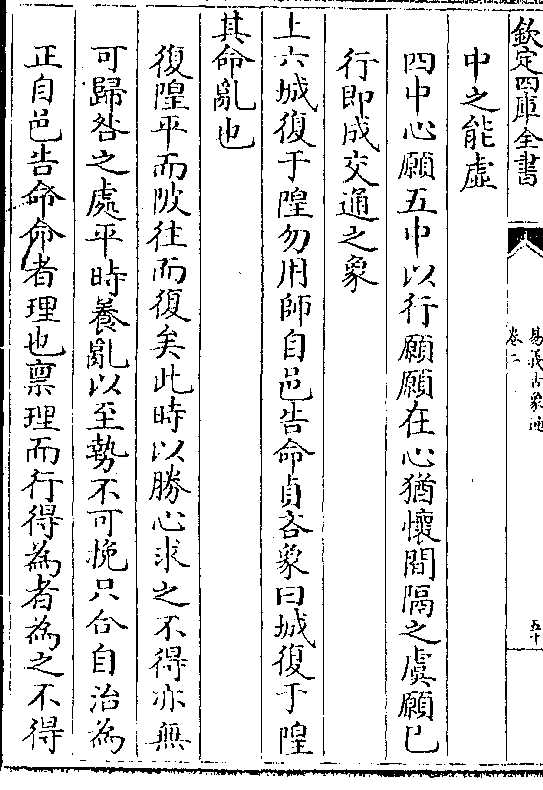 欽定四庫全書
易義古象通
卷二
五十
中之能虛
四中心願五中以行願願在心猶懷間隔之虞願已
行即成交通之象
上六城復于隍勿用師自邑告命貞吝象曰城復于隍
其命亂也
復隍平而陂往而復矣此時以勝心求之不得亦無
可歸咎之處平時養亂以至勢不可挽只合自治為
正自邑告命命者理也稟理而行得為者為之不得